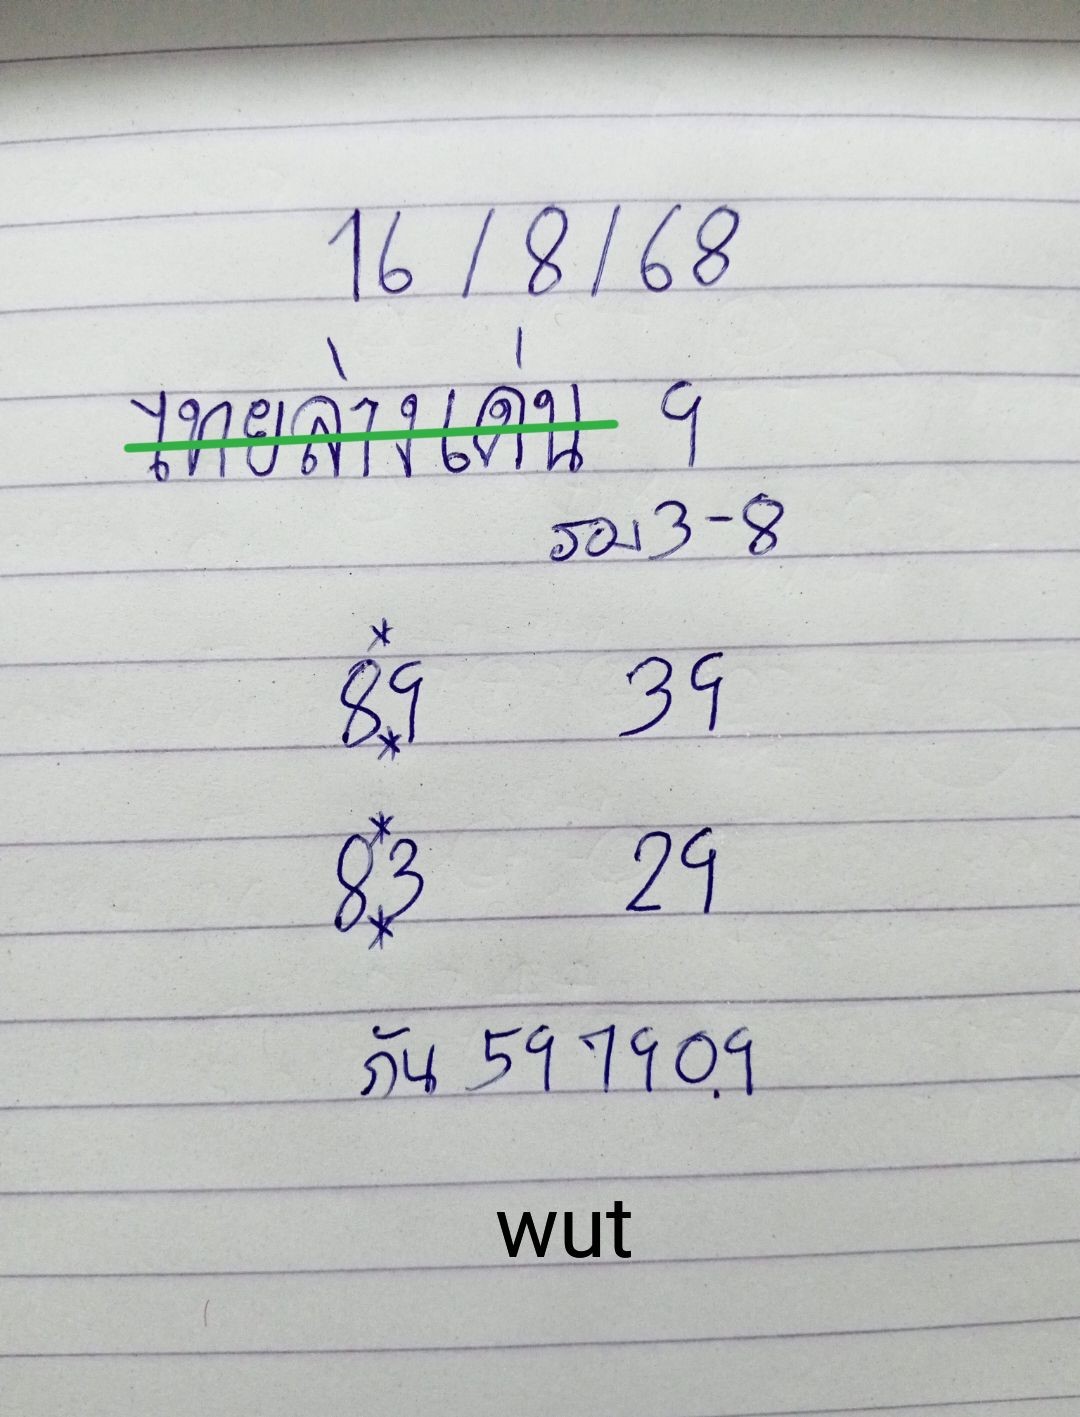 16/8/68
ไทยล่างเด่น 9
รอง 3-8
*
89 39
*
*
83 29
*
กัน 59 79 0.9
wut